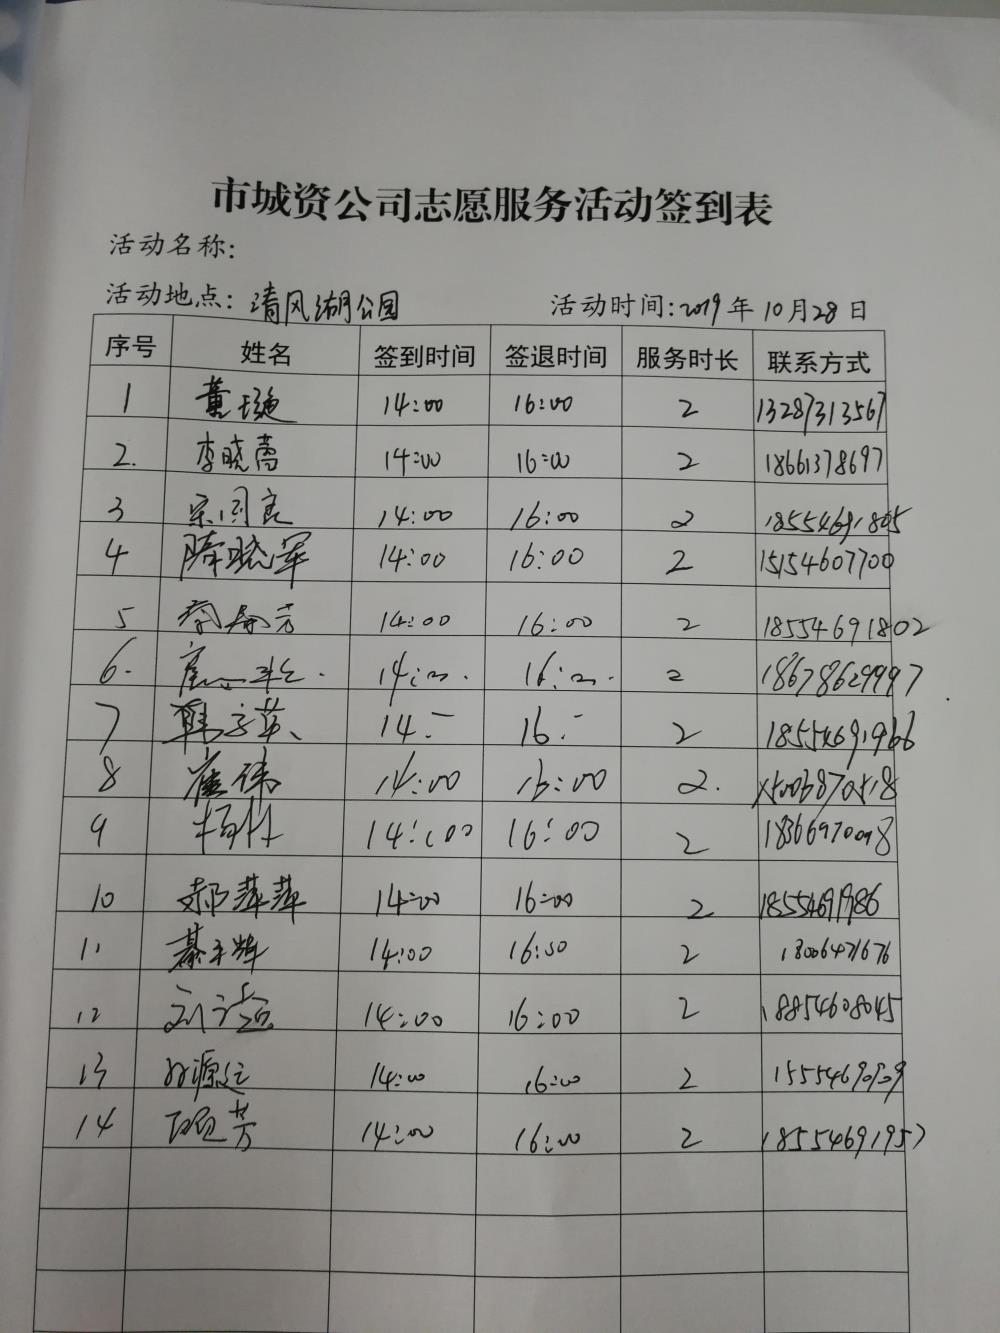 市城资公司志愿服务活动签到表
活动名称:
活动地点: 清风湖公园 活动时间:2019年10月28日
序号 姓名 签到时间 签退时间 服务时长 联系方式
1 董璇 14:00 16:00 2 13287313567
2. 李晓蒿 14:00 16:00 2 18661378697
3 宋国良 14:00 16:00 2 18554691805
4 隋晓军 14:00 16:00 2 15154607700
5 14:00 16:00 2 18554691802
6. 14:00. 16:00. 2 18678629997
7 韩云英 14:- 16:- 2 18554691966
8 崔伟 14:00 16:00 2. 15006870518
9 14:00 16:00 2 18366970098
10 郝萍萍 14:00 16:00 2 18554691986
11 綦玉辉 14:00 16:00 2 18006471676
12 14:00 16:00 2 18854608045
13 14:00 16:00 2 15554690909
14 14:00 16:00 2 18554691957